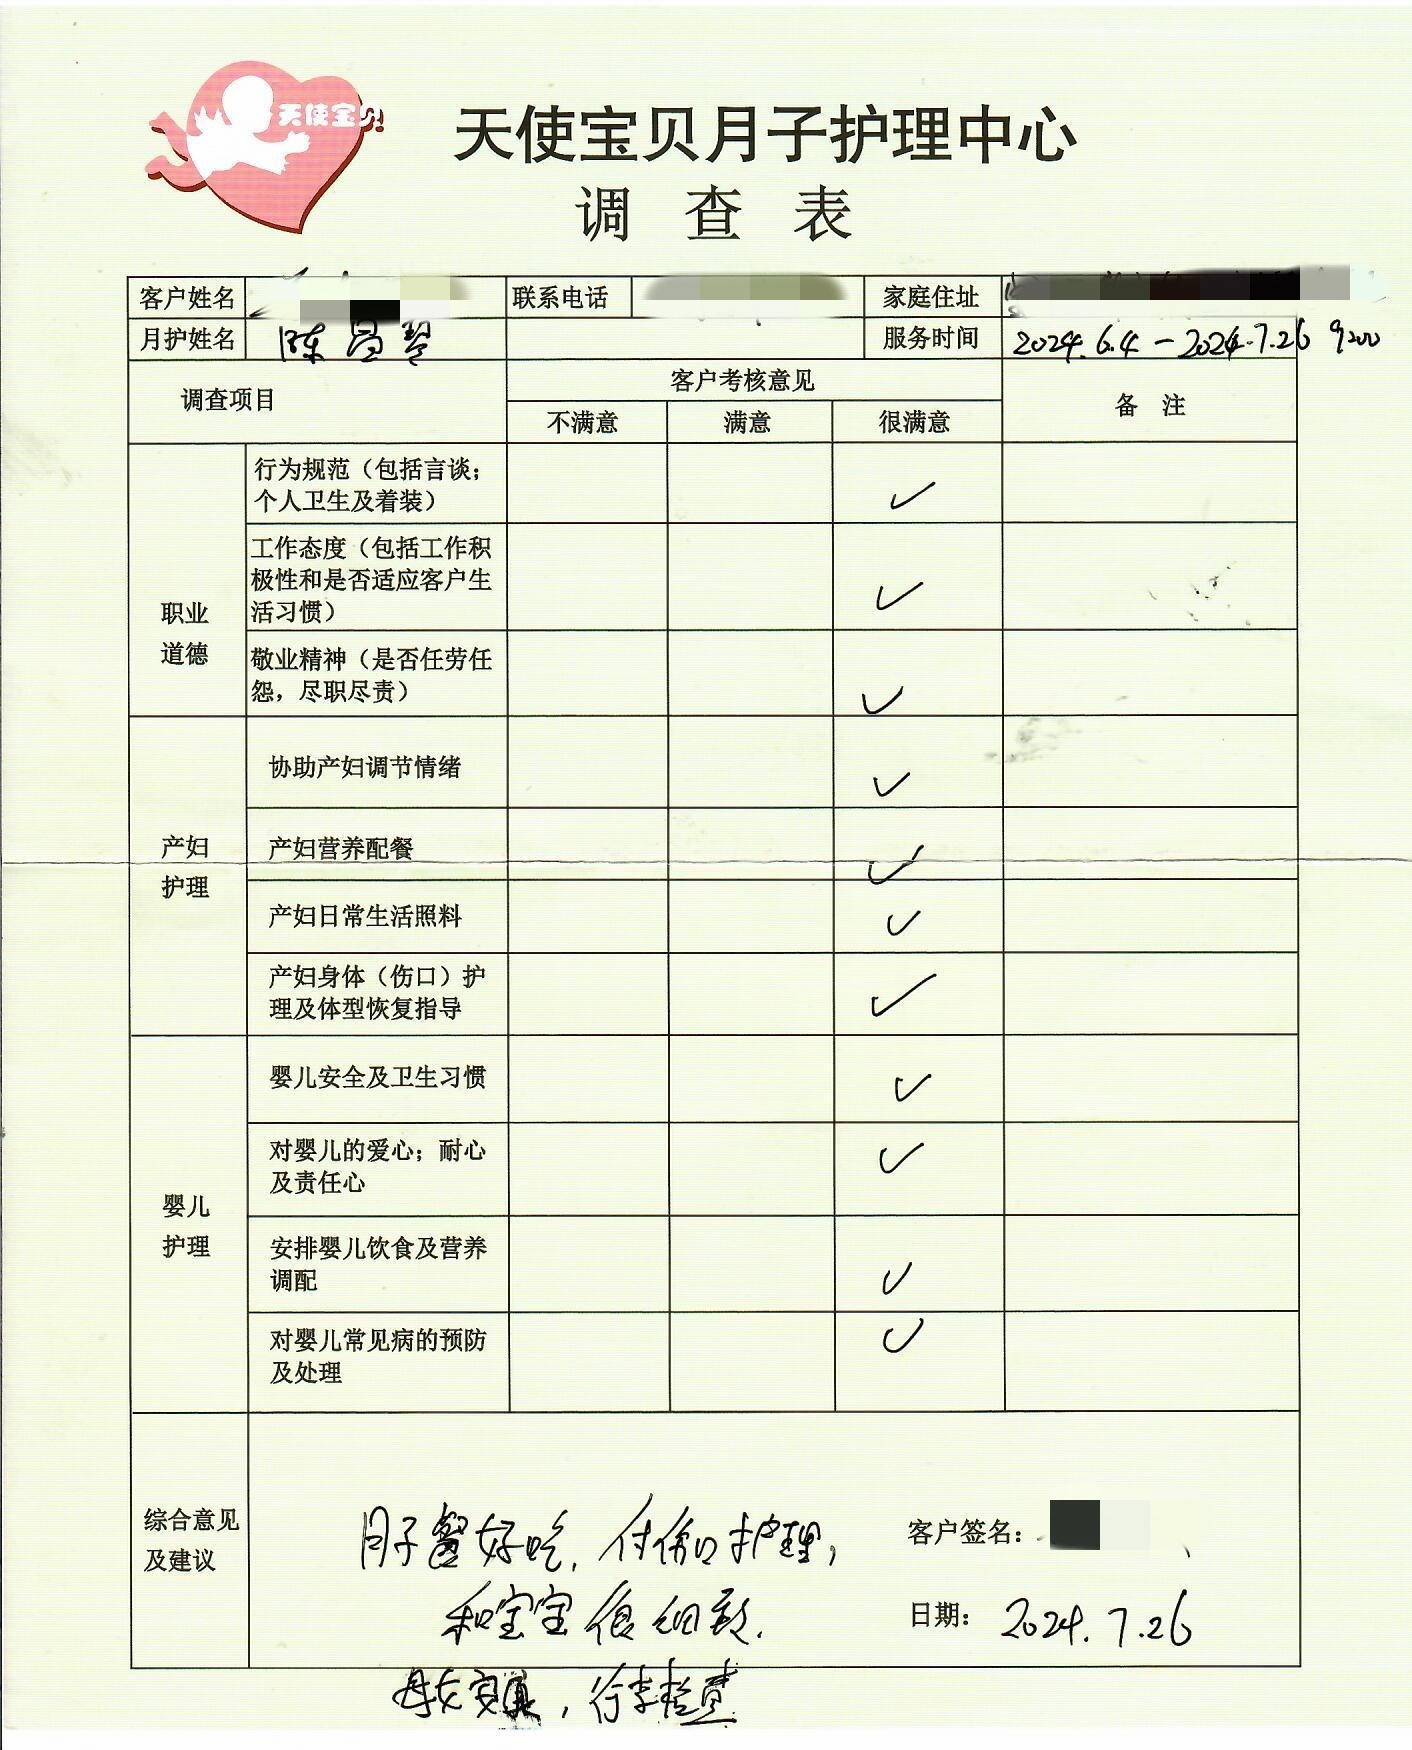 天使宝贝
天使宝贝月子护理中心
调 查 表
客户姓名 联系电话 家庭住址
月护姓名 陈昌琴 服务时间 2024.6.4-2024.7.26 9200
调查项目 客户考核意见 备 注
不满意 满意 很满意
职业
道德
行为规范（包括言谈；
个人卫生及着装） ✓
工作态度（包括工作积
极性和是否适应客户生
活习惯） ✓
敬业精神（是否任劳任
怨，尽职尽责） ✓
产妇
护理
协助产妇调节情绪 ✓
产妇营养配餐 ✓
产妇日常生活照料 ✓
产妇身体（伤口）护
理及体型恢复指导 ✓
婴儿
护理
婴儿安全及卫生习惯 ✓
对婴儿的爱心；耐心
及责任心 ✓
安排婴儿饮食及营养
调配 ✓
对婴儿常见病的预防
及处理 ✓
综合意见
及建议
月子餐好吃，付伤口护理，
和宝宝很细致.
客户签名：
日期： 2024.7.26